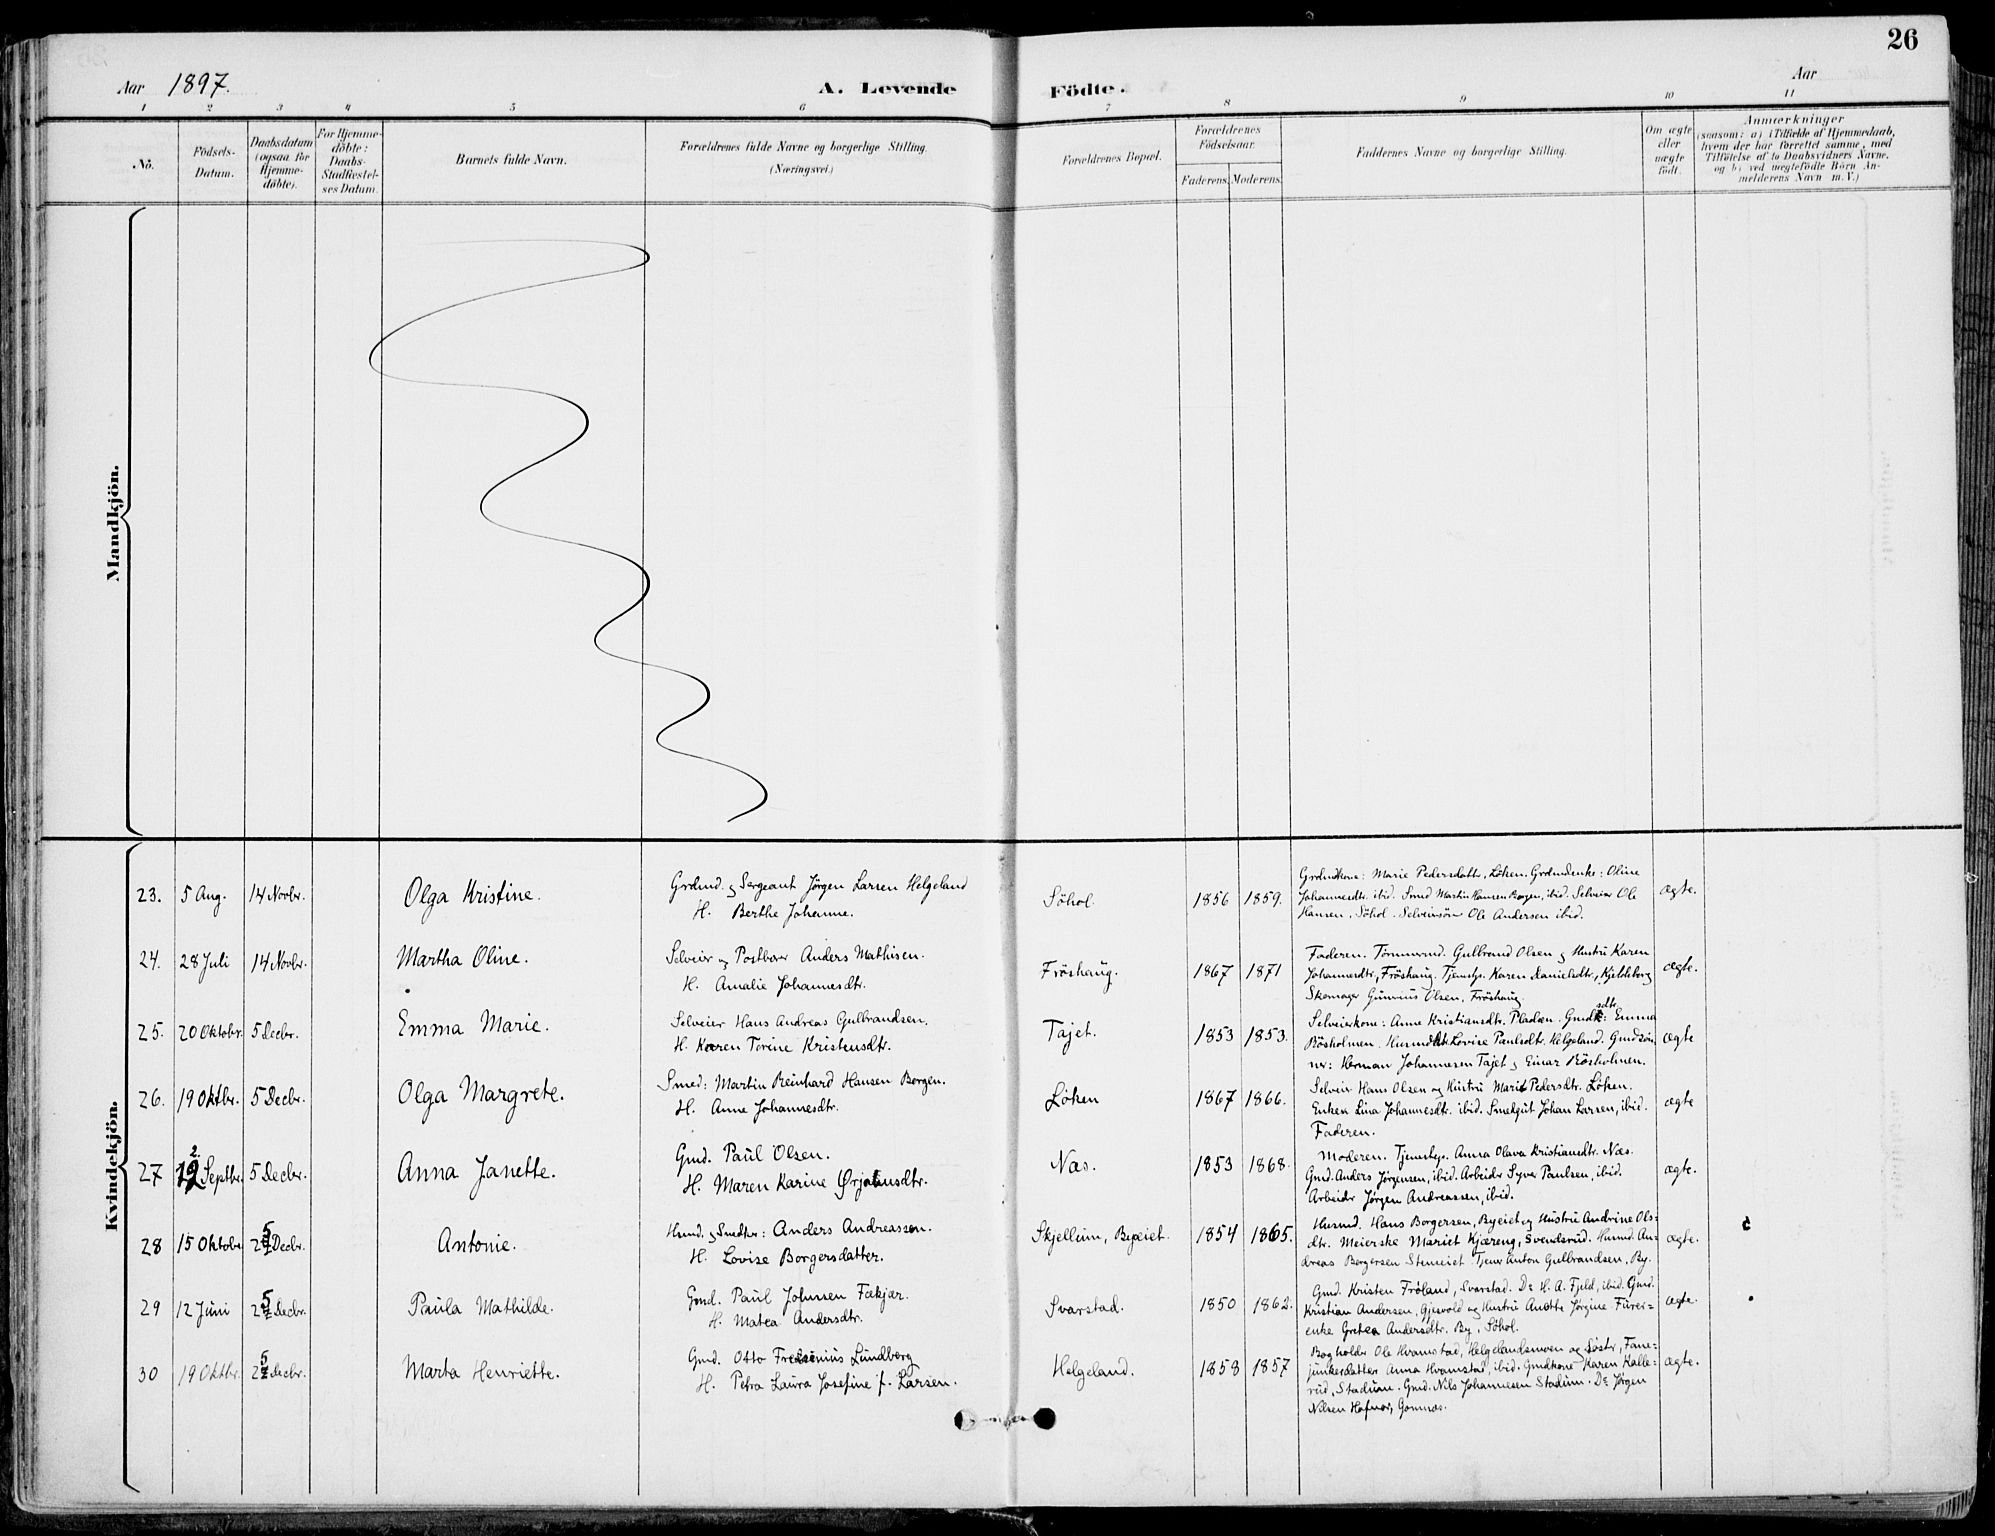 26
Aar 1897.
A. Levende
Födte.
Aar
1 2 3 4 5 6 7 8 9 10 11
No.
Födsels-
Datum.
Daabsdatum
(ogsaa for
Hjemme-
döbte).
For Hjemme-
döbte:
Daabs-
Stadfæstel-
ses Datum.
Barnets fulde Navn.
Forældrenes fulde Navne og borgerlige Stilling.
(Næringsvei.)
Forældrenes Bopæl.
Forældrenes
Födselsaar.
Faderens. Moderens.
Faddernes Navne og borgerlige Stilling.
Om ægte
eller
uægte
födt.
Anmærkninger
(saasom: a) i Tilfælde af Hjemmedaab,
hvem der har forrettet samme, med
Tilföielse af to Daabsvidners Navne,
og b) ved uægtefödte Börn An-
melderens Navn m. V.)
Mandkjön.
Kvindekjön.
23. 5 Aug. 14 Novbr. Olga Kristine.
Grdmd. og Sergeant Jørgen Larsen Helgeland
H. Berthe Johanne.
Söhol. 1856 1859.
Grdmdkone: Marie Pedersdatt., Løken. Grdmdenke: Oline
Johannesdtr. ibid. Smed Martin Hansen Borgen, ibid. Selveier Ole
Hansen, Söhol. Selveiersön Ole Andersen ibid.
ægte.
24. 28 Juli 14 Novbr. Martha Oline.
Selveier og Postbærer Anders Mathisen.
H. Amalie Johannesdtr.
Fröshaug. 1867 1871
Faderen. Tömmermd. Gulbrand Olsen og Hustru Karen
Johannesdtr, Fröshaug. Tjenstp. Karen Danielsdtr, Kjeldsberg
Skomager Gunerius Olsen, Fröshaug
ægte.
25. 20 Oktobr. 5 Decbr. Emma Marie.
Selveier Hans Andreas Gulbrandsen.
H. Karen Torine Kristensdtr.
Tajet. 1853 1853.
Selveierkone: Anne Kristiansdtr. Pladsen. Gmdsdtr: Emma
Rösholmen. Husmdsdtr. Lovise Paulsdtr. Helgeland. Gmdsön
ner: Herman Johannesen Tajet og Einar Rösholmen.
ægte
26. 19 Oktbr. 5 Decbr. Olga Margrete.
Smed: Martin Reinhard Hansen Borgen.
H. Anne Johannesdtr.
Løken 1867 1866.
Selveier Hans Olsen og Hustru Marit Pedersdtr. Løken.
Enken Lina Johannesdtr. ibid. Smedgut Johan Larsen, ibid.
Faderen.
ægte
27 12 Septbr. 5 Decbr. Anna Janette.
Gmd. Paul Olsen.
H. Maren Karine Ørjansdtr.
Næs. 1853 1868.
Moderen. Tjenstp. Anna Olava Kristiansdtr. Næs.
Gmd. Anders Jørgensen, ibid. Arbeider Syver Paulsen, ibid.
Arbeider Jørgen Andreassen, ibid.
ægte.
28 15 Oktobr 25 Decbr. Antonie.
Husmd. og Snedker: Anders Andreassen.
H. Lovise Borgersdatter.
Skjellum, Byeiet. 1854 1865.
Husmd. Hans Borgersen, Byeiet og Hustru Andrine Ols-
dtr. Meierske Mariet Kjæreng, Svendsrud. Husmd. An-
dreas Borgersen Steneiet Tjener Anton Gulbrandsen, By.
ægte.
29 12 Juni 25 Decbr. Paula Mathilde.
Gmd. Paul Johnsen Fækjær.
H. Matea Andersdtr.
Svarstad. 1850 1862.
Gmd. Kristen Frøland, Svarstad. Do H. A. Fjeld, ibid. Gmd.
Kristian Andersen, Gjesvold og Hustru Anette Jørgine. Furer-
enke Gretea Andersdtr. By, Söhol.
ægte.
30 19 Oktbr. 25 Decbr. Marta Henriette.
Gmd. Otto Lundberg
H. Petra Laura Josefine f. Larsen.
Helgeland. 1858 1857
Bogholder Ole Kvamstad, Helgelandsmoen og Søster, Fane-
junkerdatter Anna Kvamstad, ibid. Gmdkone Karen Kalle-
rud, Stadum. Gmd. Nils Johannesen Stadum. Do Jørgen
Nilsen Hafnor, Gomnæs.
ægte.